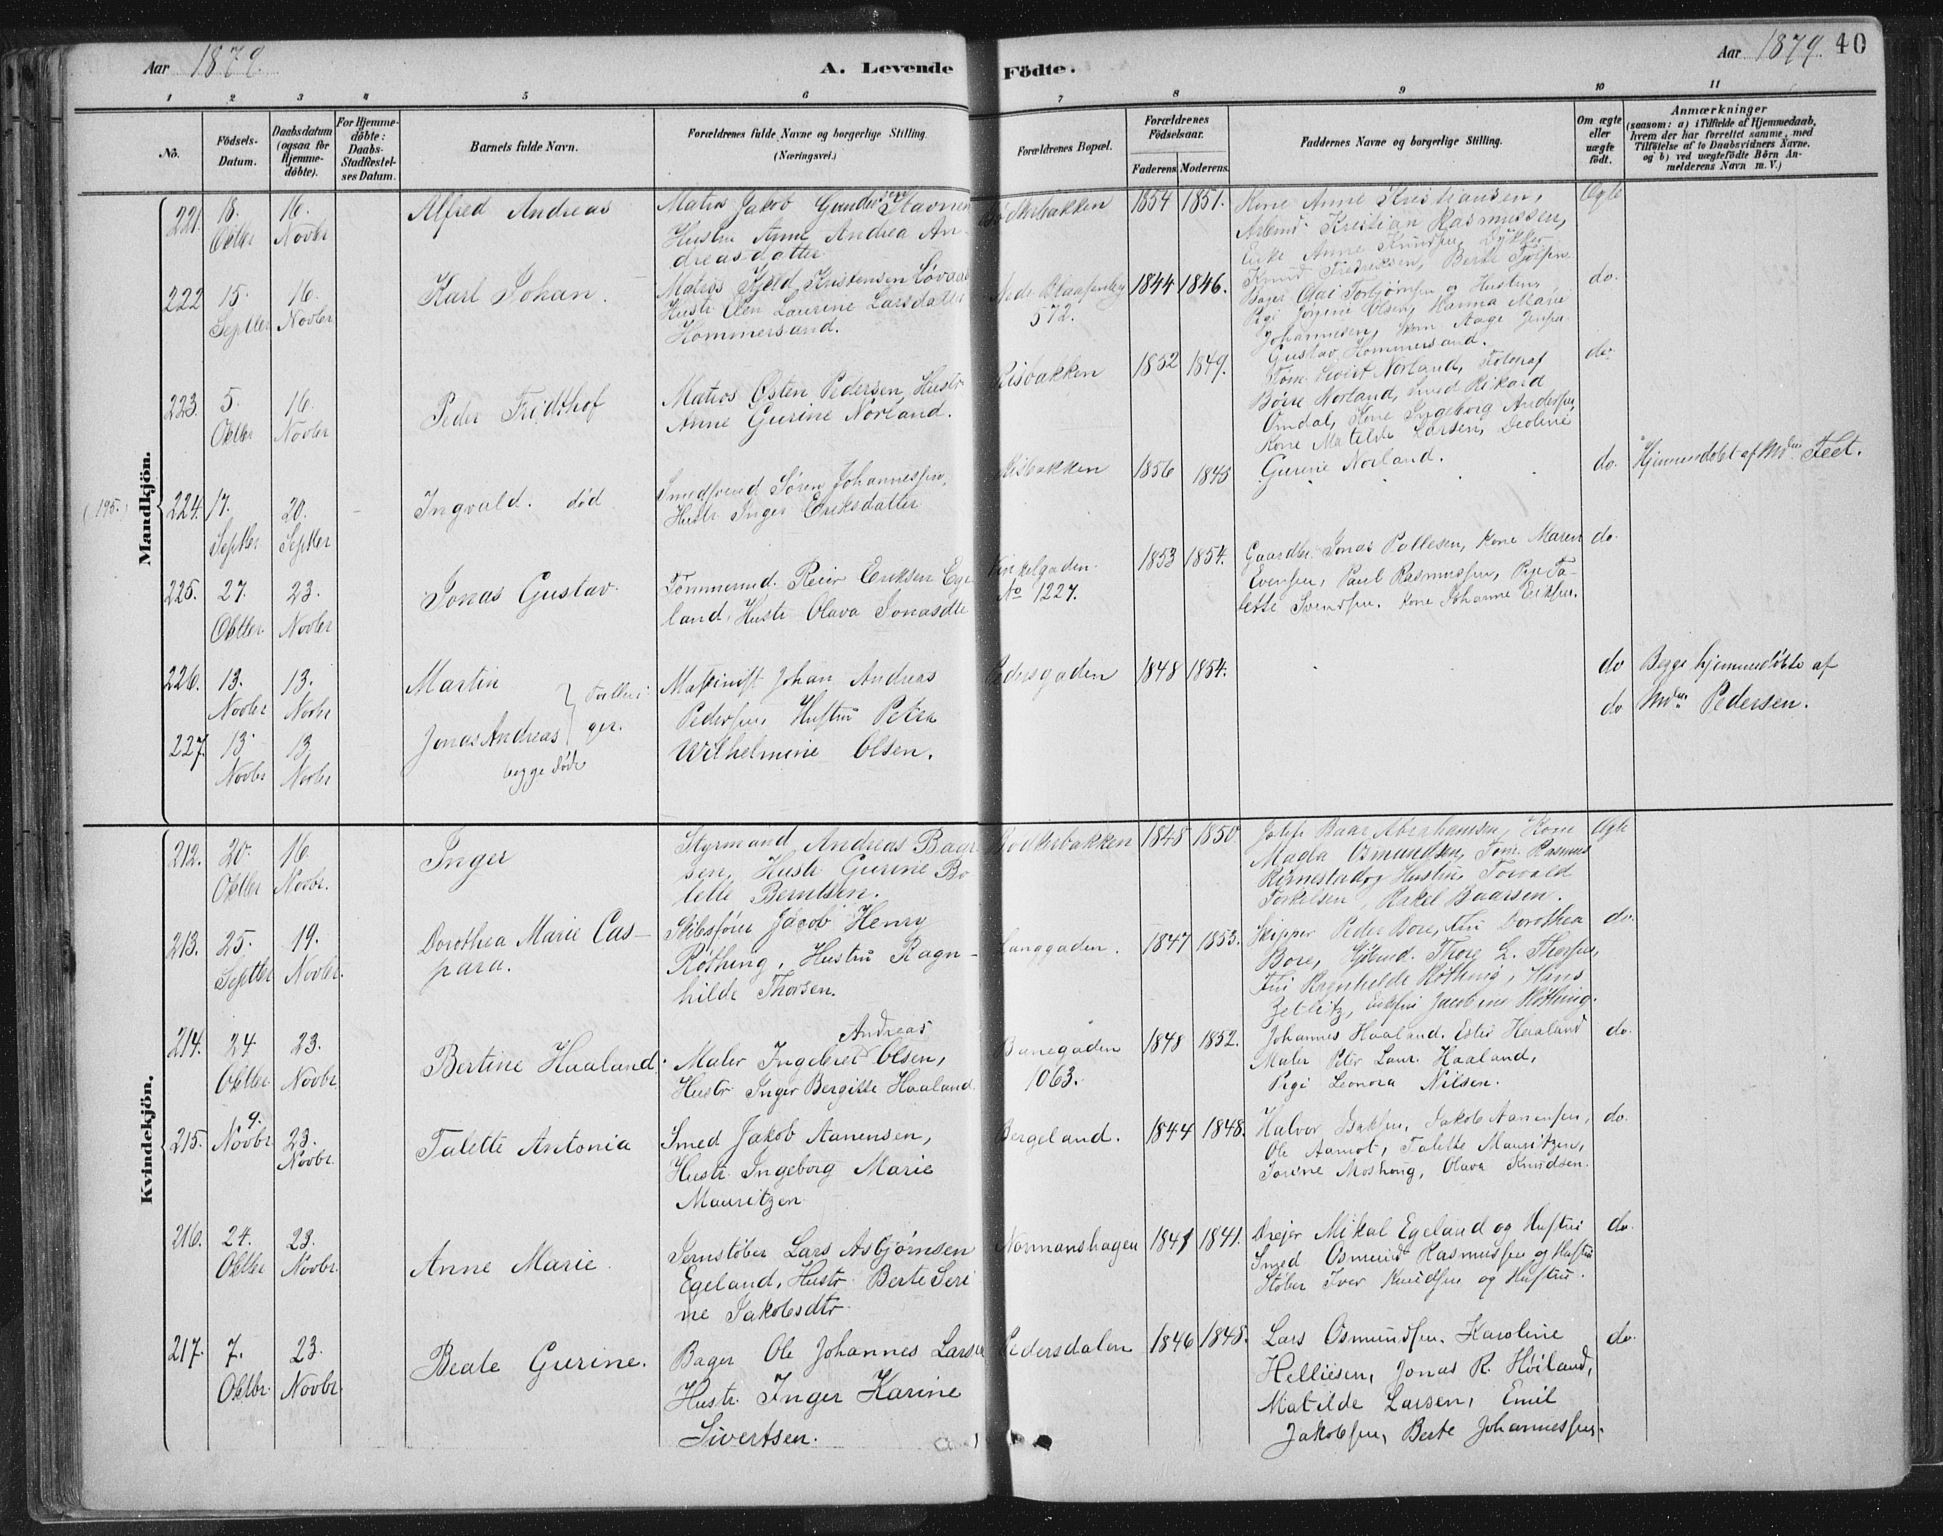 Aar 1879.
A. Levende Födte.
Aar 1879. 40
1 2 3 4 5 6 7 8 9 10 11
Nö.
Födsels-Datum.
Daabsdatum (ogsaa for Hjemme-döbte).
For Hjemme-döbte: Daabs-Stadfæstel-ses Datum.
Barnets fulde Navn.
Forældrenes fulde Navne og borgerlige Stilling. (Næringsvei.)
Forældrenes Bopæl.
Forældrenes Födselsaar.
Faderens Moderens.
Faddernes Navne og borgerlige Stilling.
Om ægte eller uægte födt.
Anmærkninger
(saasom: a) i Tilfælde af Hjemmedaab,
hvem der har forrettet samme, med
Tilföielse af to Daabsvidners Navne.
og b) ved uægtefödte Börn An-
melderens Navn m. V.)
Mandkjön.
221. 18. Oktbr 16. Novbr
Alfred Andreas
Matros Jakob
Hustru Anne Andrea An-
dreasdatter
1854 1851.
Kone Anne Kristiansen,
Arbmd. Kristian Rasmussen,
Enke Anne Knudsen, Dykker
Knud Fredriksen, Berte
Ægte
222 15. Septbr 16. Novbr
Karl Johan.
Matros Kjeld Kristensen
Hustr. Elen Laurine Larsdatter
Hommersand.
572.
1844 1846.
Bager Torbjörnsen og Hustru,
Pige Jørgine Olsen, Hanna Marie
Johannesen, Aage
Gustav Hommersand.
do.
223. 5. Oktbr 16. Novbr
Peder Fridthof
Matros Østen Pedersen, Hustr
Anne Gurine Norland.
Risbakken
1852 1849.
Norland,
Börre Norland, Smed Rikard
Omdal, Kone Ingeborg Andersen,
Kone Matilde Larsen, Deoline
Gurine Norland.
do.
(195.) 224. 17. Septbr 20. Septbr
Ingvald. död
Smedsvend Søren Johannesen,
Hustr Inger Eriksdatter
Risbakken
1856 1845
do.
Hjemmedöbt af Feet.
225. 27. Oktbr 23. Novbr
Jonas Gustav.
Tømmermd. Reier Eriksen Ege-
land, Hustr Olava Jonasdtr
Vinkelgaden. No 1227.
1853 1854.
Gaardbr. Jonas Pallesen, Kone Maren
Evensen, Paul Rasmussen, Pige Ta-
lette Svendsen. Kone Johanne Eriksen.
do.
226. 13. Novbr 13. Novbr
Martin
227. 13. Novbr 13. Novbr
Jonas Andreas
Tvillinger.
begge døde
Maskinist Johan Andreas
Pedersen, Hustru Petra
Wilhelmine Olsen.
Pedersgaden
1848 1854.
do
do
Begge hjemmedöbte af
Pedersen.
Kvindekjön.
212. 20. Oktbr 16. Novbr.
Inger
Styrmand Andreas Baar-
sen, Hustr Gurine Bo-
lette Berntsen.
Bødkerbakken
1848 1850.
Baar Abrahamsen, Kone
Malla Osmundsen, Tøm. Rasmus
og Hustru, Torvald
Torkelsen, Rakel Baarsen.
Ægte
213. 25. Septbr 19. Novbr.
Dorothea Marie Cas-
para.
Skibsfører Jacob Henry
Røthing, Hustru Ragn-
hilde Thorsen.
Langgaden.
1847 1853.
Skipper Peder Bore, Fru Dorothea
Bore, Thore L. Thorsen,
Fru Ragnhilde Røthing, Hans
Zetlitz, Jacobine Røthing.
do.
214. 24. Oktbr. 23. Novbr.
Bertine Haaland.
Andreas
Maler Ingebret Olsen,
Hustr Inger Bergitte Haaland
Banegaden 1063.
1848 1852.
Johannes Haaland. Ester Haaland
Maler Peter Laur. Haaland,
Pige Leonora Nilsen.
do.
215. 9. Novbr 23. Novbr.
Talette Antonia
Smed Jakob Aanensen,
Hustr. Ingeborg Marie
Mauritzen
Bergeland.
1844 1848.
Halvor Jakob Aanensen,
Ole Aamot, Talette Mauritzen,
Torine Moshong, Olava Knudsen.
do.
216. 24. Oktbr 23. Novbr.
Anne Marie.
Jernstøber Lars Asbjørnsen
Egeland, Hustr. Berte Seri-
ne Jakobsdtr.
Normanshagen
1841 1841.
Drejer Mikal Egeland og Hustru
Smed Osmund Rasmussen og Hustru
Støber Iver Knudsen og Hustru.
do.
217. 7. Oktbr. 23. Novbr.
Beate Gurine.
Bager Ole Johannes Larsen
Hustr. Inger Karine
Sivertsen.
Pedersdalen
1846 1848.
Lars Osmundsen. Karoline
Helliesen, Jonas R. Høiland,
Matilde Larsen, Emil
Jakobsen, Berte Johannessen.
do.